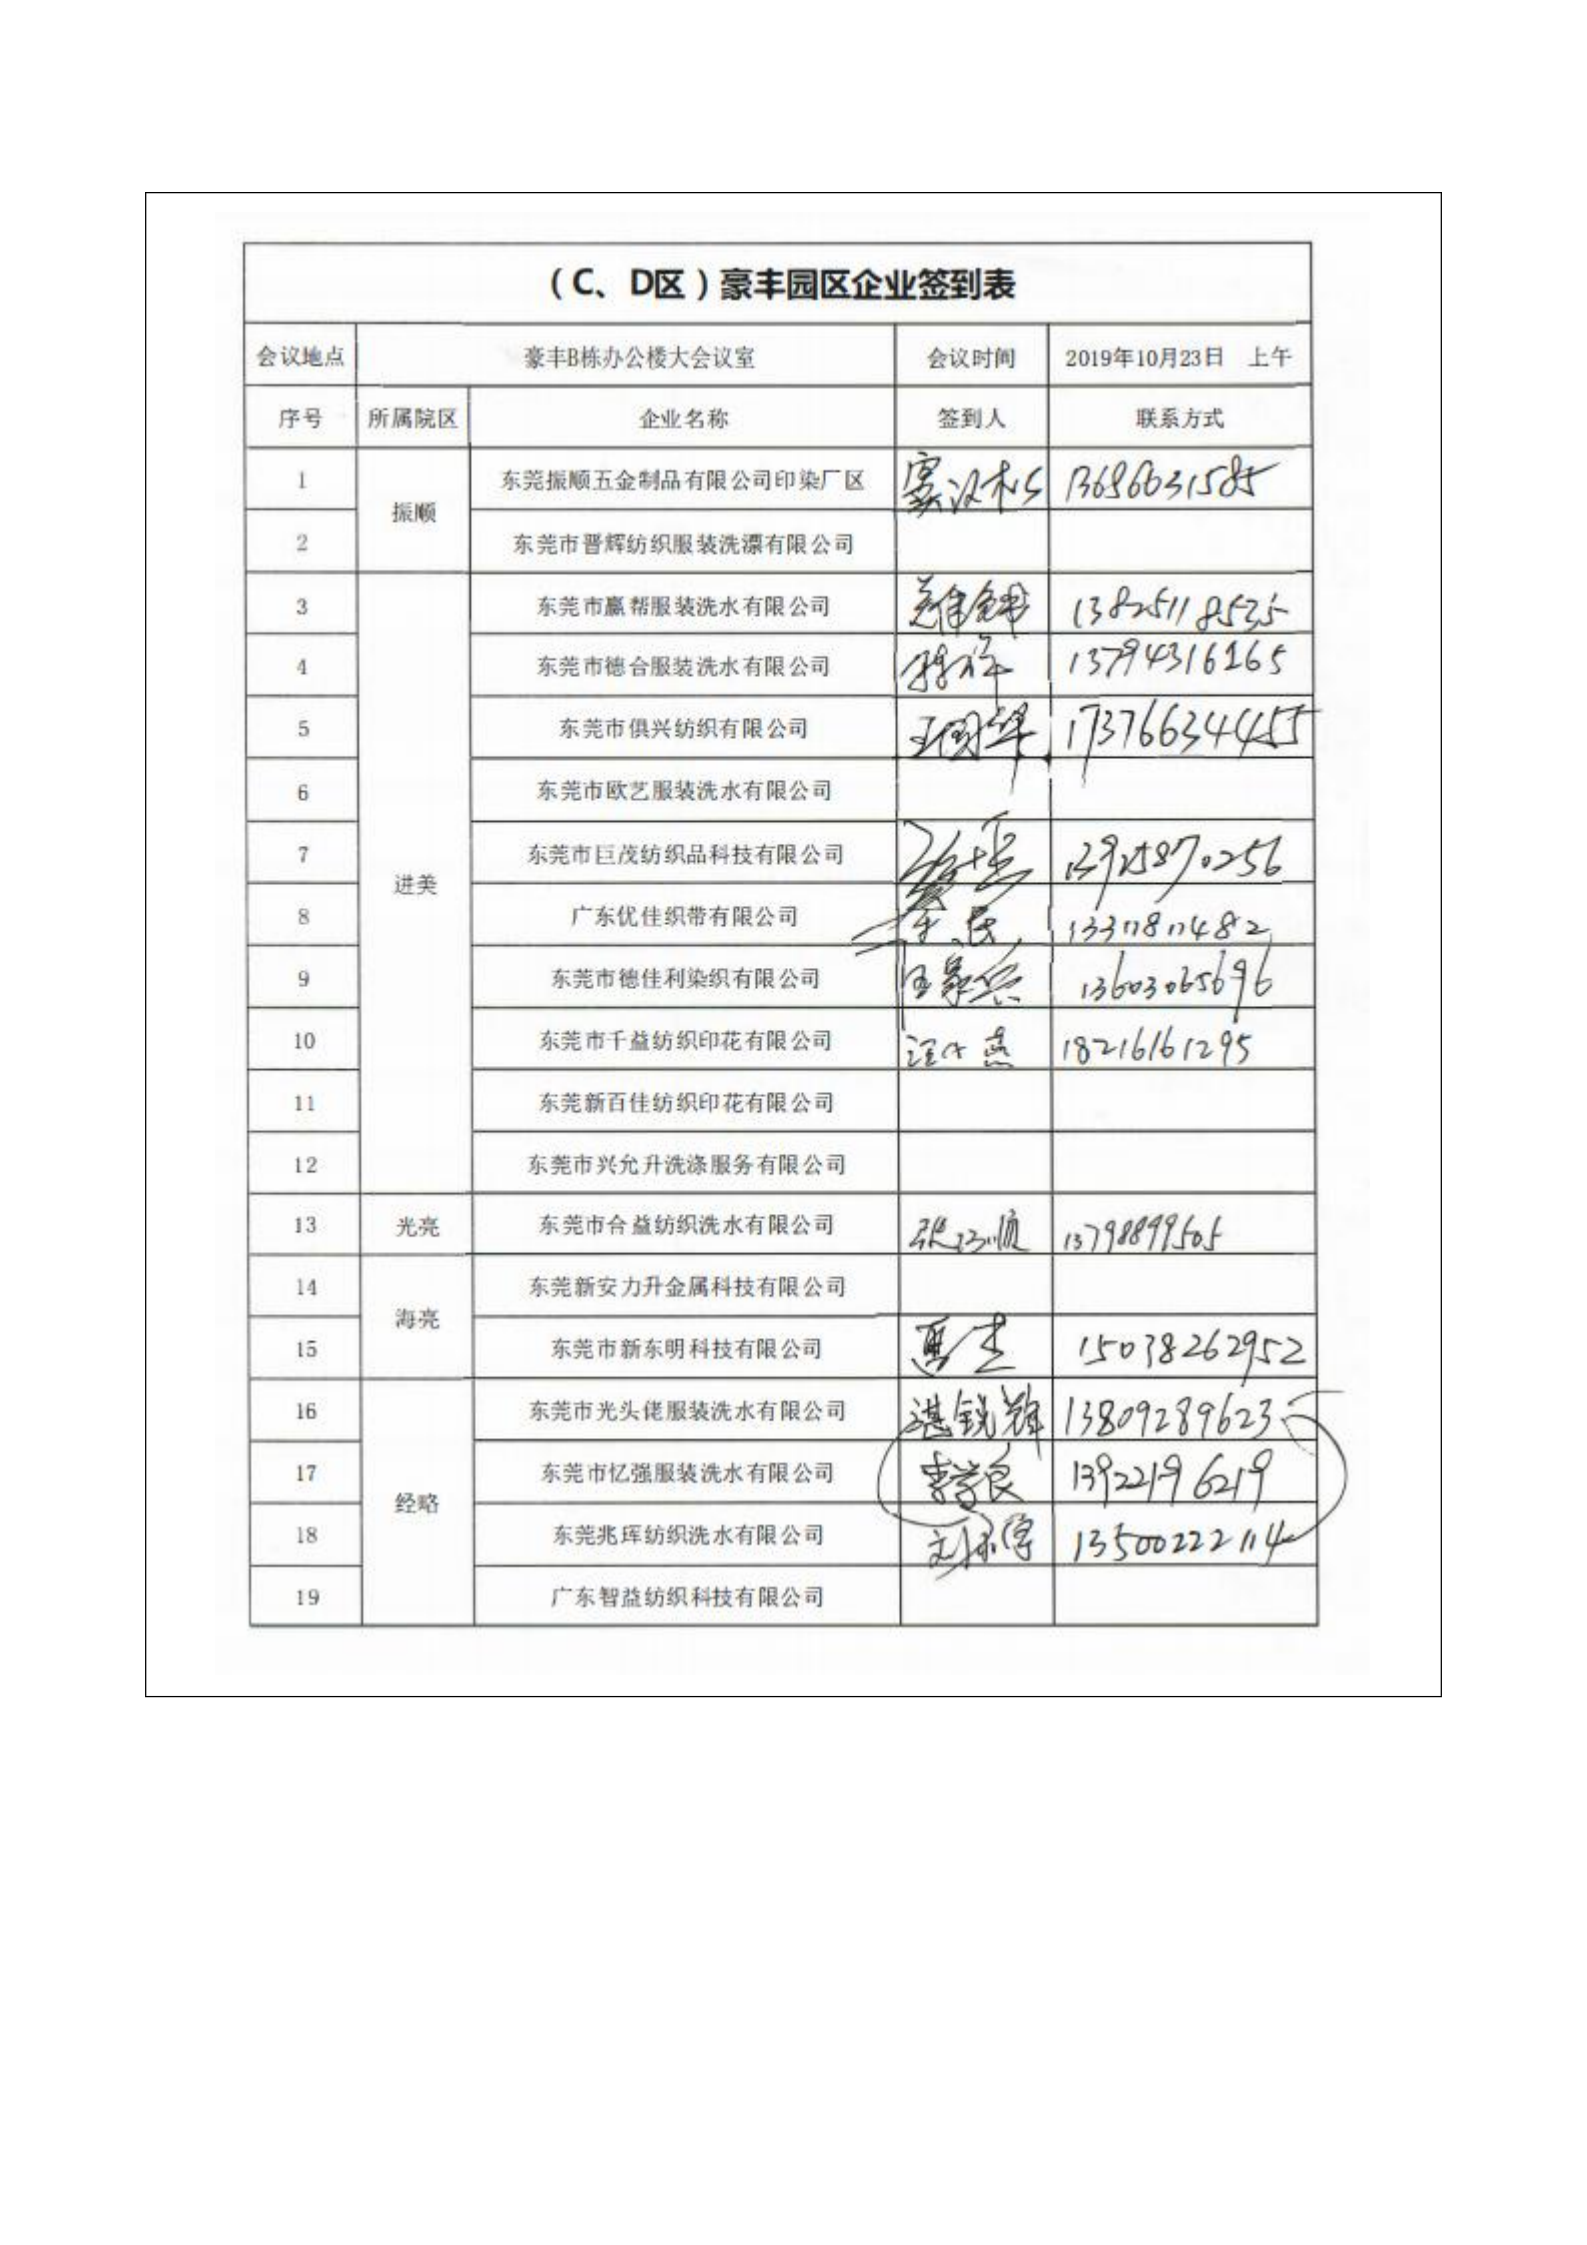 （C、D区）豪丰园区企业签到表
会议地点 豪丰B栋办公楼大会议室 会议时间 2019年10月23日 上午
序号 所属院区 企业名称 签到人 联系方式
1 振顺 东莞振顺五金制品有限公司印染厂区 13686631585
2 东莞市晋辉纺织服装洗漂有限公司
3 进美 东莞市赢帮服装洗水有限公司 13825118535
4 东莞市德合服装洗水有限公司 13794316265
5 东莞市俱兴纺织有限公司 王国华 173766344455
6 东莞市欧艺服装洗水有限公司
7 东莞市巨茂纺织品科技有限公司 13925870256
8 广东优佳织带有限公司
9 东莞市德佳利染织有限公司 13603065696
10 东莞市千益纺织印花有限公司 18216161295
11 东莞新百佳纺织印花有限公司
12 东莞市兴允升洗涤服务有限公司
13 光亮 东莞市合益纺织洗水有限公司 13798899505
14 海亮 东莞新安力升金属科技有限公司
15 东莞市新东明科技有限公司 15038262952
16 经略 东莞市光头佬服装洗水有限公司 湛锐辉 13809289623
17 东莞市忆强服装洗水有限公司 李学良 13922196219
18 东莞兆珲纺织洗水有限公司 13500222114
19 广东智益纺织科技有限公司